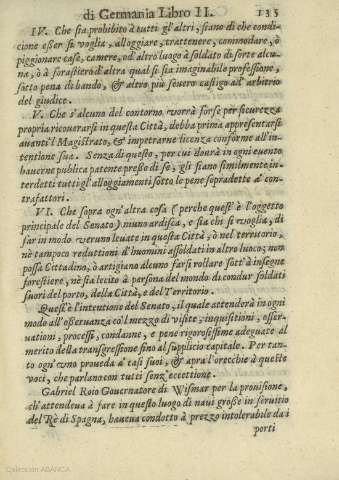 di Germania Libro II. 135
IV. Che sia prohibito à tutti gl'altri, siano di che condi-
cione esser si voglia, alloggiare, trattenere, commodare, ò
piggionare case, camere, od altro luogo à soldato di sorte alcu-
na, ò à forastiero d'altra qual si sia imaginabile professione,
sotto pena di bando, & altro più severo castigo ad arbitrio
del giudice.
V. Che s'alcuno del contorno vorrà forse per sicurezza
propria ricouerarsi in questa Città, debba prima appresentarsi
auanti'l Magistrato, & impetrarne licenza conforme all'in-
tentione sua. Senza di questo, per cui dourà in ogni euento
hauerne publica patente presso di sè, gli siano similmente in-
terdetti tutti gl'alloggiamenti sotto le pene sopradette a' con-
trafattori.
VI. Che sopra ogn'altra cosa (perche quest' è l'oggetto
principale del Senato) niuno ardisca, e sia chi si voglia, di
far in modo veruno leuate in questa Città, ò nel territorio,
nè tampoco reduttioni d'huomini assoldati in altro luoco; non
possa Cittadino, ò artigiano alcuno farsi rollare sott' à insegne
forestiere, nè sia lecito à persona del mondo di condur soldati
fuori del porto, della Città, e del Territorio.
Quest' è l'intentione del Senato, il quale attenderà in ogni
modo all'osseruanza co'l mezzo di visite, inquisitioni, osser-
uationi, processi, condanne, e pene rigorosissime adeguate al
merito della transgressione fino al supplicio capitale. Per tan-
to ogn'vno proueda a' casi suoi, & apra l'orecchie à queste
voci, che parlano con tutti senz'eccettione.
Gabriel Roio Gouernatore di Wismar per la prouisione,
ch'attendeua à fare in questo luogo di naui grosse in seruitio
del Rè di Spagna, haueua condotto à prezzo intolerabile da i
porti
Colección ABANCA